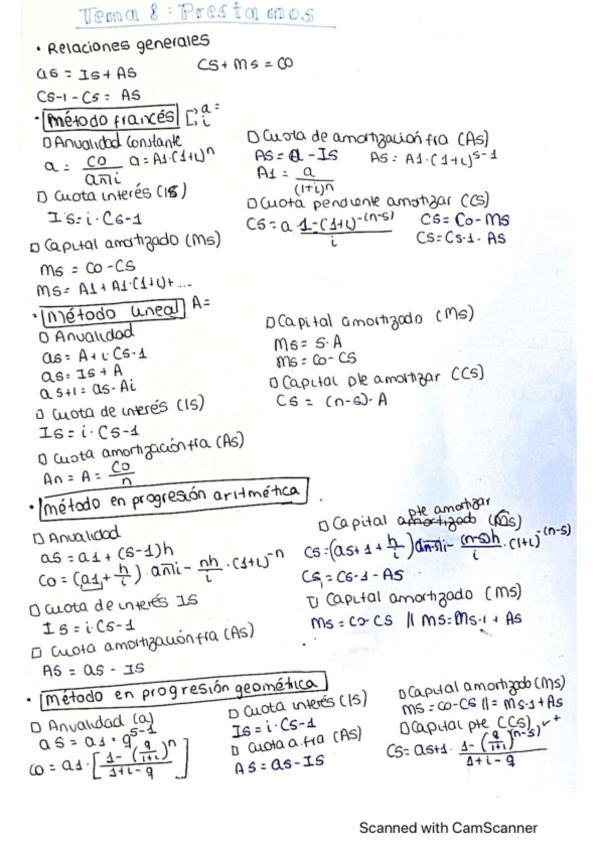 Tema 8: Prestamos
• Relaciones generales
as = Is + As
Cs + Ms = Co
Cs-1 - Cs = As
• Método francés a = i
□ Anualidad constante
a = Co / an¬i a = A1·(1+i)^n
□ Cuota interés (Is)
Is = i · Cs-1
□ Capital amortizado (Ms)
Ms = Co - Cs
Ms = A1 + A1·(1+i) + ....
□ Cuota de amortización fra (As)
As = a - Is As = A1·(1+i)^s-1
A1 = a / (1+i)^n
□ Cuota pendiente amortizar (Cs)
Cs = a · 1-(1+i)^-(n-s) / i Cs = Co - Ms
Cs = Cs-1 - As
• Método lineal A =
□ Anualidad
as = A + i · Cs-1
as = Is + A
as+1 = as - Ai
□ Cuota de interés (Is)
Is = i · Cs-1
□ Cuota amortización fra (As)
An = A = Co / n
□ Capital amortizado (Ms)
Ms = s · A
Ms = Co - Cs
□ Capital pte amortizar (Cs)
Cs = (n-s) · A
• Método en progresión aritmética
□ Anualidad
as = a1 + (s-1)h
Co = (a1 + h/i) · an¬i - nh/i · (1+i)^-n
□ Cuota de interés Is
Is = i · Cs-1
□ Cuota amortización fra (As)
As = as - Is
□ Capital pte amortizar (Cs)
Cs = (as+1 + h/i) an-s¬i - (n-s)h/i · (1+i)^-(n-s)
Cs = Cs-1 - As
□ Capital amortizado (Ms)
Ms = Co - Cs // Ms = Ms-1 + As
• Método en progresión geométrica
□ Anualidad (a)
as = a1 · q^s-1
Co = a1 · [1 - (q/1+i)^n / 1+i-q]
□ Cuota interés (Is)
Is = i · Cs-1
□ Cuota a fra (As)
As = as - Is
□ Capital amortizado (Ms)
Ms = Co - Cs // = Ms-1 + As
□ Capital pte (Cs)
Cs = as+1 · 1 - (q/1+i)^(n-s) / 1+i-q
Scanned with CamScanner